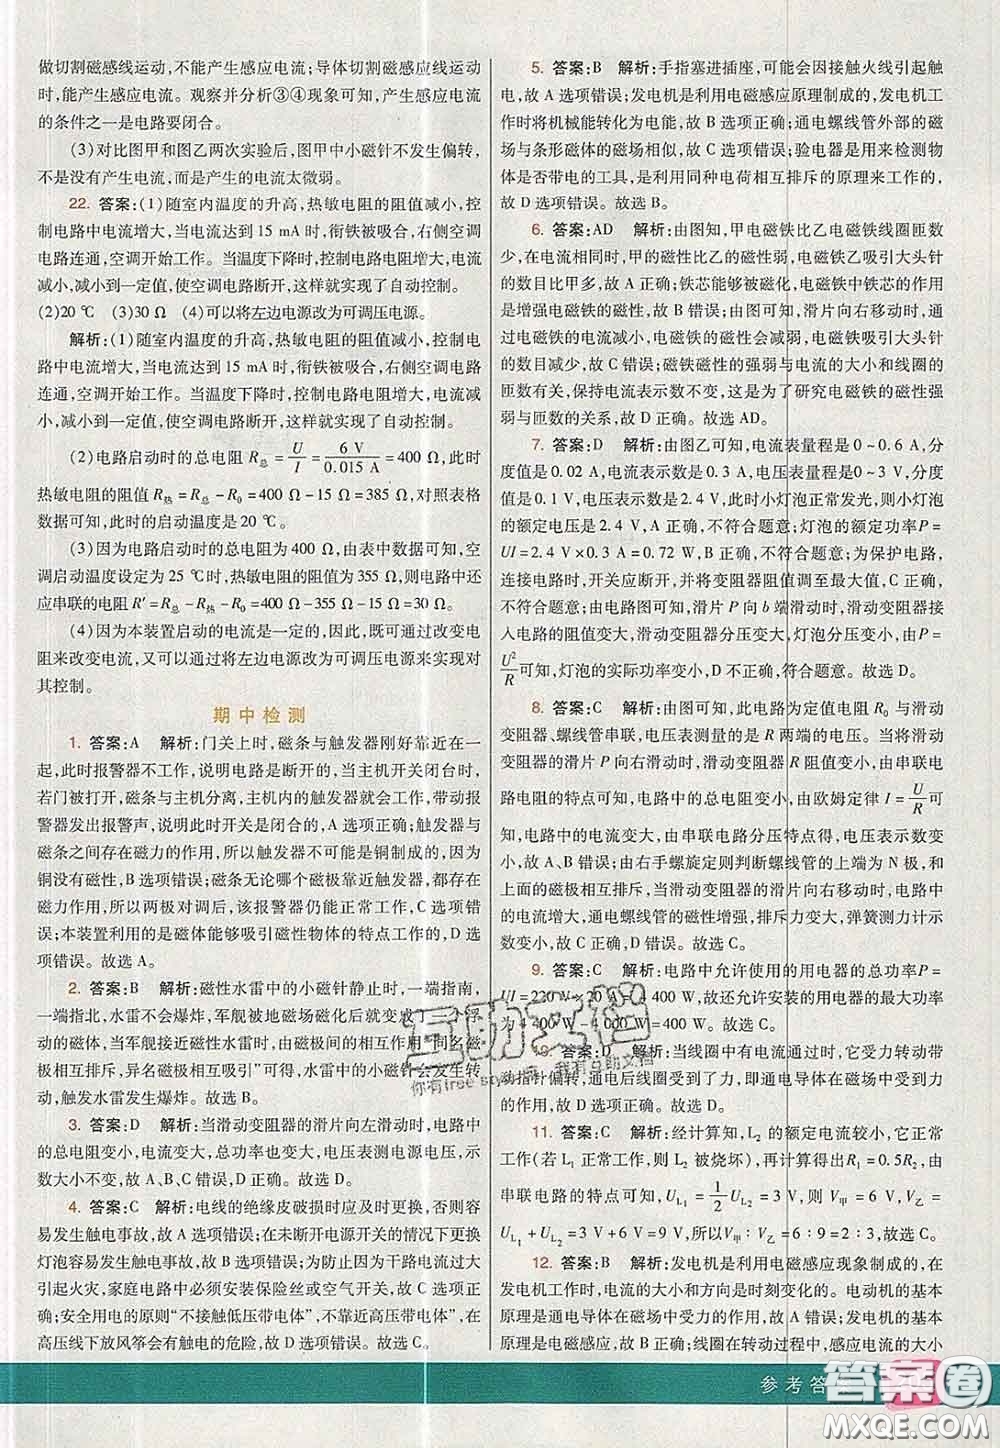 做切割磁感线运动,不能产生感应电流;导体切割磁感应线运动
时,能产生感应电流。观察并分析③④现象可知,产生感应电流
的条件之一是电路要闭合。
(3)对比图甲和图乙两次实验后,图甲中小磁针不发生偏转,
不是没有产生电流,而是产生的电流太微弱。
22. 答案:(1)随室内温度的升高,热敏电阻的阻值减小,控
制电路中电流增大,当电流达到 15 mA 时,衔铁被吸合,右侧空调
电路连通,空调开始工作。当温度下降时,控制电路电阻增大,电流
减小,减小到一定值,使空调电路断开,这样就实现了自动控制。
(2)20 ℃ (3)30 Ω (4)可以将左边电源改为可调压电源。
解析:(1)随室内温度的升高,热敏电阻的阻值减小,控制电
路中电流增大,当电流达到 15 mA 时,衔铁被吸合,右侧空调电路
连通,空调开始工作。当温度下降时,控制电路电阻增大,电流减
小,减小到一定值,使空调电路断开,这样就实现了自动控制。
(2)电路启动时的总电阻 R总 = U/I = 6 V/0.015 A = 400 Ω,此时
热敏电阻的阻值 R热 = R总 - R0 = 400 Ω - 15 Ω = 385 Ω,对照表格
数据可知,此时的启动温度是 20 ℃。
(3)因为电路启动时的总电阻为 400 Ω,由表中数据可知,空
调启动温度设定为 25 ℃时,热敏电阻的阻值为 355 Ω,则电路中还
应串联的电阻 R′ = R总 - R热 - R0 = 400 Ω - 355 Ω - 15 Ω = 30 Ω。
(4)因为本装置启动的电流是一定的,因此,既可通过改变电
阻来改变电流,又可以通过将左边电源改为可调压电源来实现对
其控制。
期中检测
1. 答案:A 解析:门关上时,磁条与触发器刚好靠近在一
起,此时报警器不工作,说明电路是断开的,当主机开关闭合时,
若门被打开,磁条与主机分离,主机内的触发器就会工作,带动报
警器发出报警声,说明此时开关是闭合的,A 选项正确;触发器与
磁条之间存在磁力的作用,所以触发器不可能是铜制成的,因为
铜没有磁性,B 选项错误;磁条无论哪个磁极靠近触发器,都存在
磁力作用,所以两极对调后,该报警器仍能正常工作,C 选项错
误;本装置利用的是磁体能够吸引磁性物体的特点工作的,D 选
项错误。故选 A。
2. 答案:B 解析:磁性水雷中的小磁针静止时,一端指南,
一端指北,水雷不会爆炸。军舰被地磁场磁化后就变成了一个浮
动的磁体,当军舰接近磁性水雷时,由磁极间的相互作用“同名磁
极相互排斥,异名磁极相互吸引”可得,水雷中的小磁针会发生转
动,触发水雷发生爆炸。故选 B。
3. 答案:D 解析:当滑动变阻器的滑片向左滑动时,电路中
的总电阻变小,电流变大,总功率也变大,电压表测电源电压,示
数大小不变,故 A、B、C 选项错误,D 选项正确。故选 D。
4. 答案:C 解析:电线的绝缘皮破损时应及时更换,否则容
易发生触电事故,故 A 选项错误;在未断开电源开关的情况下更换
灯泡容易发生触电事故,故 B 选项错误;为防止因为干路电流过大
引起火灾,家庭电路中必须安装保险丝或空气开关,故 C 选项正
确;安全用电的原则“不接触低压带电体”,“不靠近高压带电体”,在
高压线下放风筝会有触电的危险,故 D 选项错误。故选 C。
5. 答案:B 解析:手指塞进插座,可能会因接触火线引起触
电,故 A 选项错误;发电机是利用电磁感应原理制成的,发电机工
作时将机械能转化为电能,故 B 选项正确;通电螺线管外部的磁
场与条形磁体的磁场相似,故 C 选项错误;验电器是用来检测物
体是否带电的工具,是利用同种电荷相互排斥的原理来工作的,
故 D 选项错误。故选 B。
6. 答案:AD 解析:由图知,甲电磁铁比乙电磁铁线圈匝数
少,电流相同时,甲的磁性比乙的磁性弱,电磁铁乙吸引大头针
的数目比甲多,故 A 正确;铁芯能够被磁化,电磁铁中铁芯的作用
是增强电磁铁的磁性,故 B 错误;由图知,滑片向右移动时,通
过电磁铁的电流减小,电磁铁的磁性会减弱,电磁铁吸引大头针
的数目减少,故 C 错误;电磁铁磁性的强弱与电流的大小和线圈的
匝数有关,保持电流表示数不变,这是为了研究电磁铁的磁性
强弱与匝数的关系,故 D 正确。故选 AD。
7. 答案:D 解析:由图乙可知,电流表量程是 0~0.6 A,分度
值是 0.02 A,电流表示数是 0.3 A,电压表量程是 0~3 V,分度
值是 0.1 V,电压表示数是 2.4 V,此时小灯泡正常发光,则小灯泡
的额定电压是 2.4 V,A 不符合题意;灯泡的额定功率 P =
UI = 2.4 V × 0.3 A = 0.72 W,B 不符合题意;为保护电路,
连接电路时,开关应断开,将变阻器阻值调至最大值,C 不符合
题意;由电路图可知,滑片 P 向 b 端滑动时,滑动变阻器接
入电路的阻值变大,滑动变阻器分压变大,灯泡分压变小,由 P =
U²/R 可知,灯泡的实际功率变小,D 不正确,符合题意。故选 D。
8. 答案:C 解析:由图可知,此电路为定值电阻 R0 与滑动
变阻器、螺线管串联,电压表测量的是 R 两端的电压。当将滑动
变阻器的滑片 P 向右移动时,滑动变阻器 R 阻值变小,由串联
电路电阻的特点可知,电路中的总电阻变小,由欧姆定律 I = U/R 可
知,电路中的电流变大,由串联电路分压特点得,电压表示数变
小,故 A、B 错误;由右手螺旋定则判断螺线管的上端为 N 极,和
和上面的磁极相互排斥,当滑动变阻器的滑片向右移动时,电路中
的电流增大,通电螺线管的磁性增强,排斥力变大,弹簧测力计示
数变小,故 C 正确,D 错误。故选 C。
9. 答案:C 解析:电路中允许使用的用电器的总功率 P =
UI = 220 W × 20 A = 4 400 W,故还允许安装的用电器的最大功率
为 4 400 W - 4 000 W = 400 W。故选 C。
10. 答案:D 解析:当线圈中有电流通过时,它受力转动带
动指针偏转,通电后线圈受到了力,即通电导体在磁场中受力的
作用,故 D 选项正确。故选 D。
11. 答案:C 解析:经计算知,L2 的额定电流较小,它正常
工作(若 L1 正常工作,则 L2 被烧坏),再计算得出 R1 = 0.5R2,由
串联电路的特点可知,UL1 = 1/2 UL2 = 3 V,则 V甲 = 6 V,V乙 =
UL1 + UL2 = 3 V + 6 V = 9 V,所以 V甲 : V乙 = 6 : 9 = 2 : 3。故选 C。
12. 答案:B 解析:发电机是利用电磁感应现象制成的,在
发电机工作时,电流的大小和方向是时刻变化的。电动机的基本
原理是通电导体在磁场中受力的作用,故 A 错误;发电机的基本
原理是电磁感应,故 B 正确;线圈在转动过程中,感应电流的大小
互助文档
你有free style 我有互助文档
参考答
答案圈
MXQE.COM